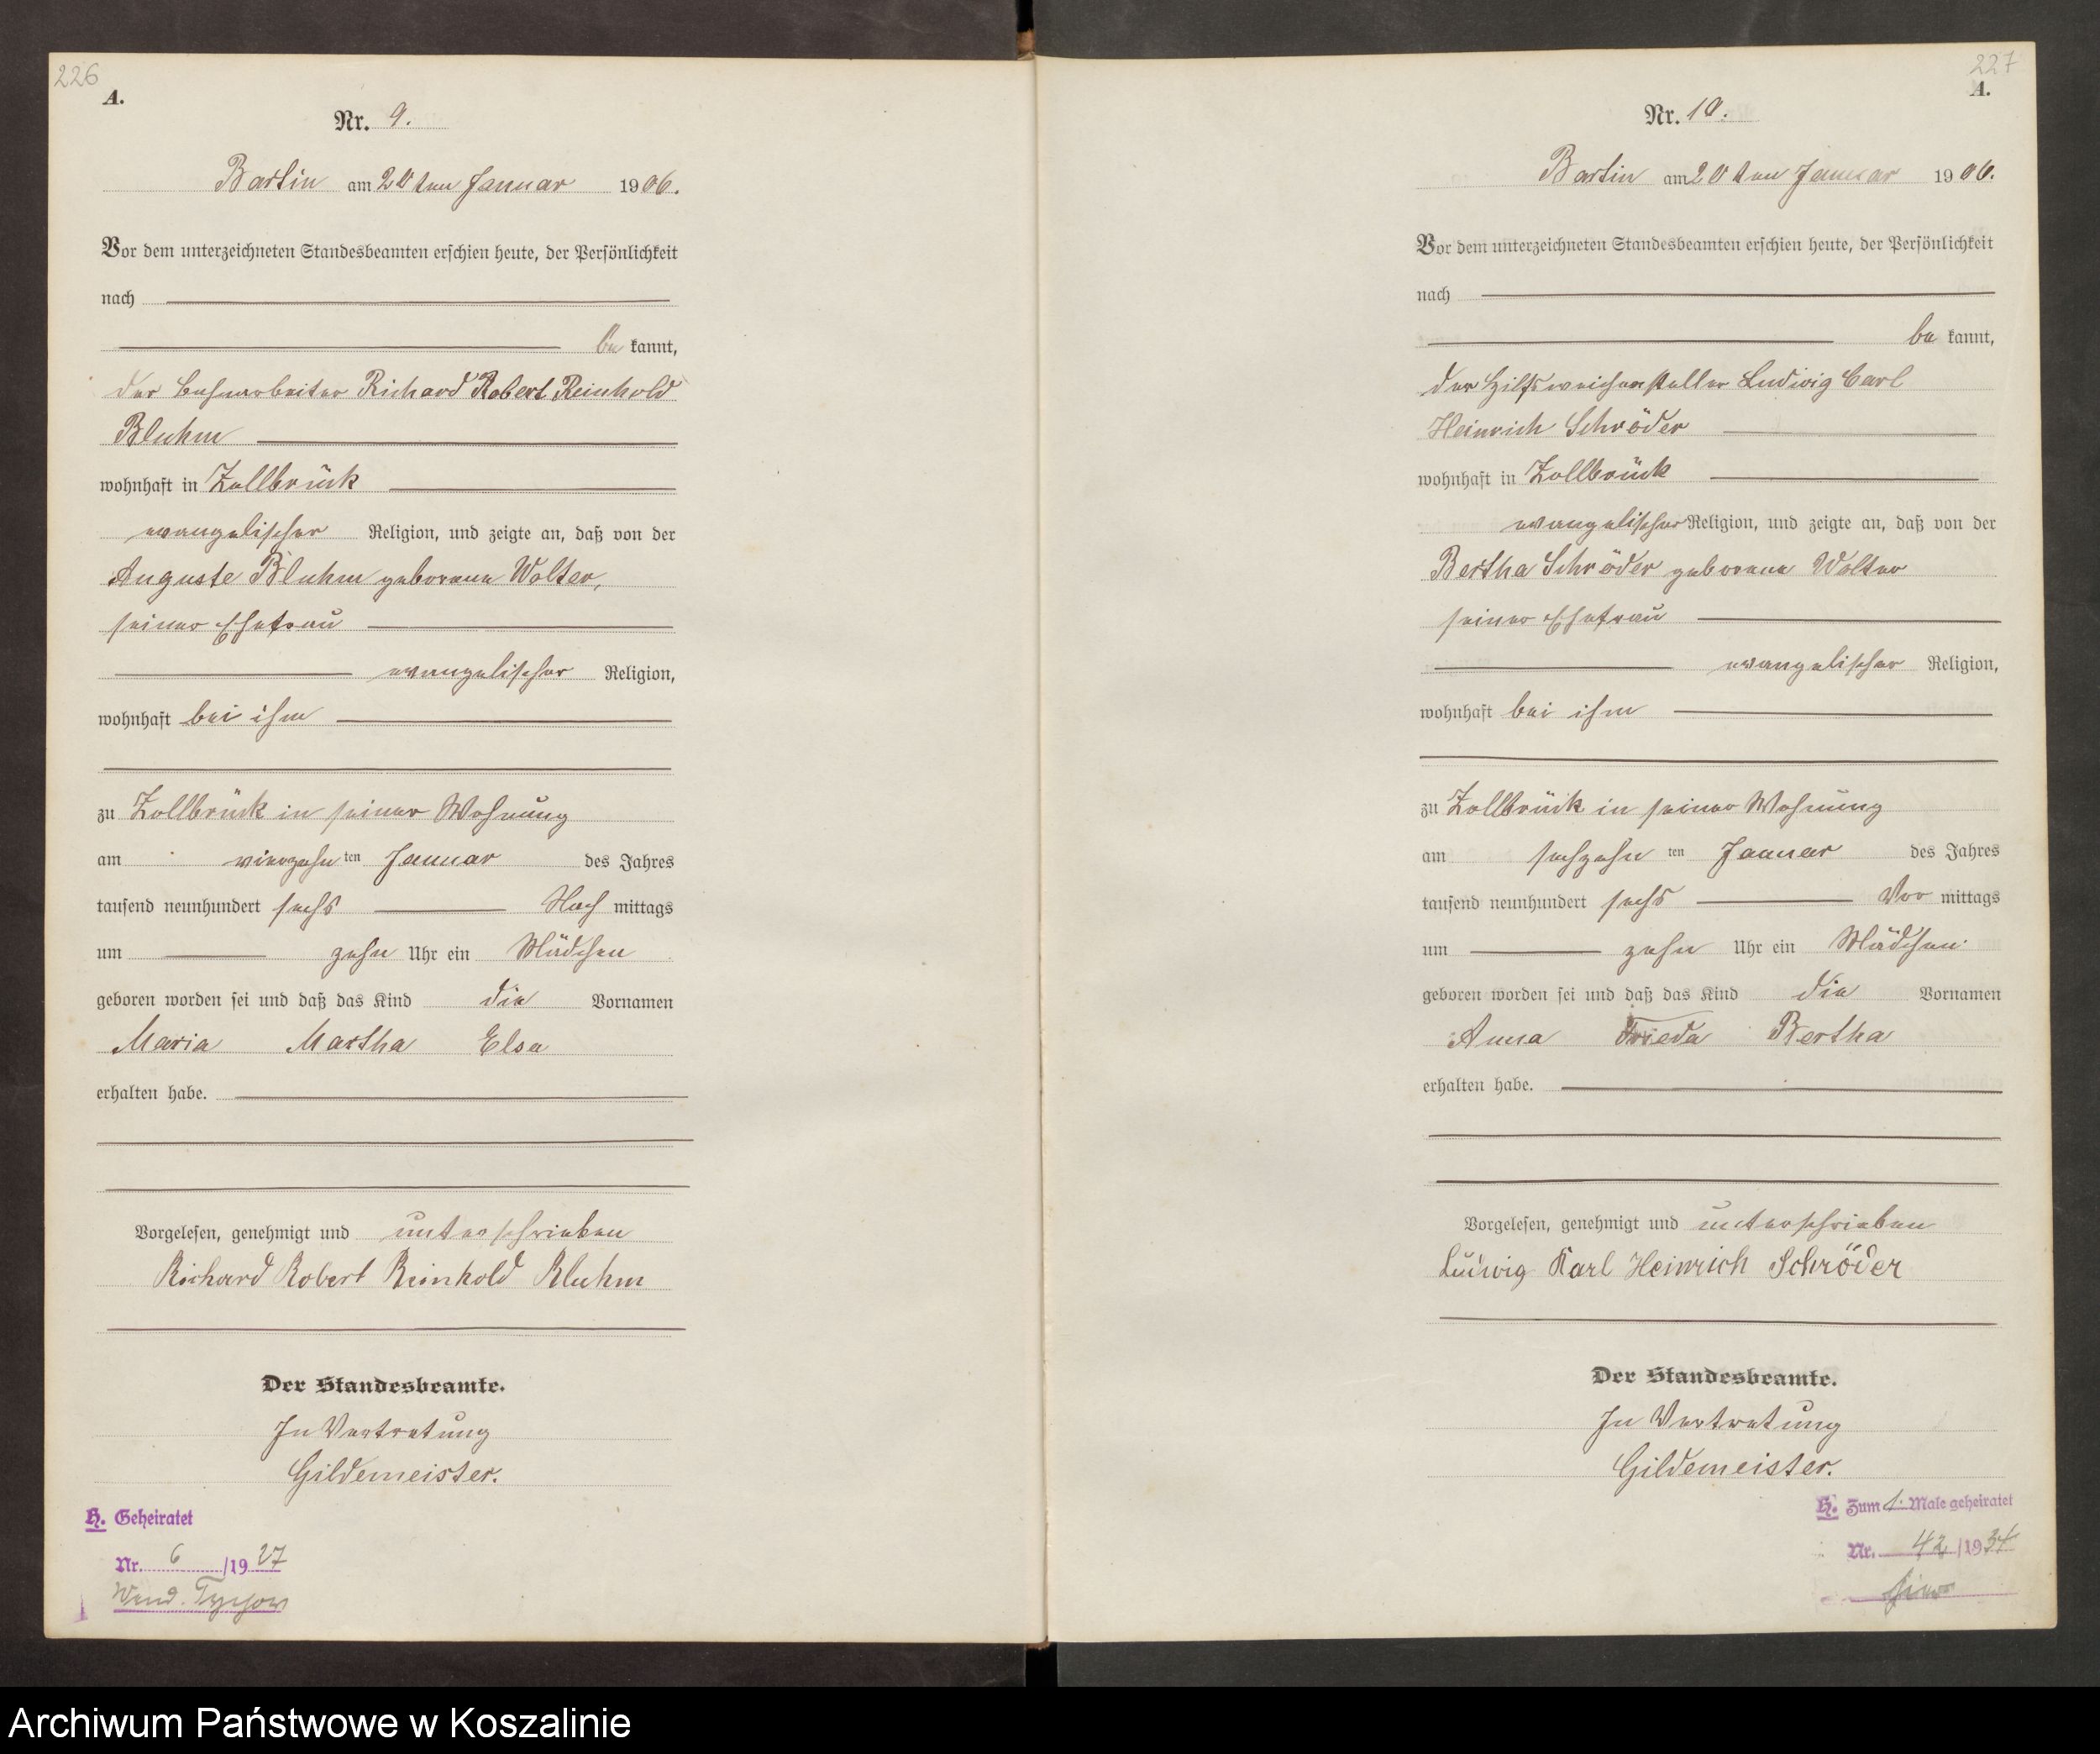 226
A.
Nr. 9.
Bartin am 20 ten Januar 1906.
Vor dem unterzeichneten Standesbeamten erschien heute, der Persönlichkeit
nach
be kannt,
der Bahnarbeiter Richard Robert Reinhold
Bluhm
wohnhaft in Zollbrück
evangelischer Religion, und zeigte an, daß von der
Auguste Bluhm geborene Wolter,
seiner Ehefrau
evangelischer Religion,
wohnhaft bei ihm
zu Zollbrück in seiner Wohnung
am vierzehn ten Januar des Jahres
tausend neunhundert sechs Nach mittags
um zehn Uhr ein Mädchen
geboren worden sei und daß das Kind die Vornamen
Maria Martha Elsa
erhalten habe.
Vorgelesen, genehmigt und unterschrieben
Richard Robert Reinhold Bluhm
Der Standesbeamte.
In Vertretung
Gildemeister.
H. Geheiratet
Nr. 6 /1927
227
A.
Nr. 10.
Bartin am 20 ten Januar 1906.
Vor dem unterzeichneten Standesbeamten erschien heute, der Persönlichkeit
nach
be kannt,
der Hilfsweichensteller Ludwig Carl
Heinrich Schröder
wohnhaft in Zollbrück
evangelischer Religion, und zeigte an, daß von der
Bertha Schröder geborene Wolter
seiner Ehefrau
evangelischer Religion,
wohnhaft bei ihm
zu Zollbrück in seiner Wohnung
am sechzehn ten Januar des Jahres
tausend neunhundert sechs Vor mittags
um zehn Uhr ein Mädchen
geboren worden sei und daß das Kind die Vornamen
Anna Frieda Bertha
erhalten habe.
Vorgelesen, genehmigt und unterschrieben
Ludwig Karl Heinrich Schröder
Der Standesbeamte.
In Vertretung
Gildemeister.
H. Zum 1. Male geheiratet
Nr. 42 /1934
hier
Archiwum Państwowe w Koszalinie